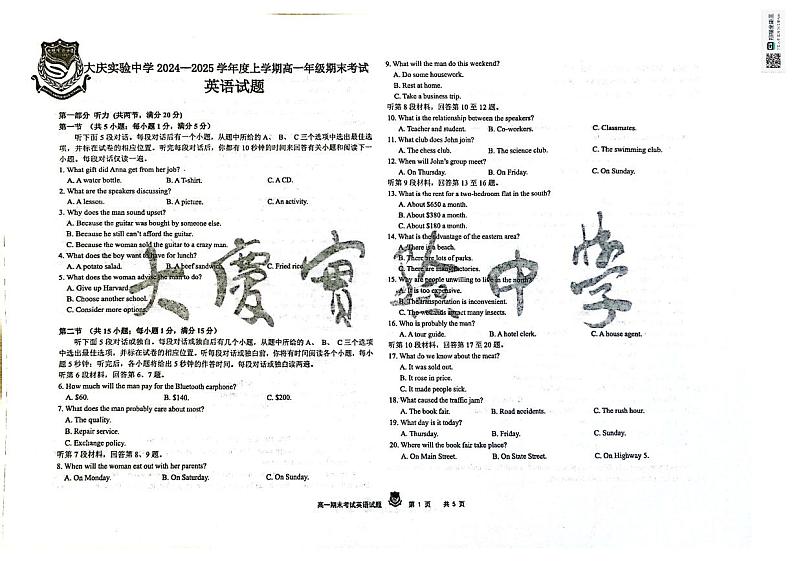 大庆实验中学 2024—2025 学年度上学期高一年级期末考试
英语试题
第一部分 听力 (共两节，满分 20 分)
第一节 （共 5 小题；每小题 1 分，满分 5 分）
听下面 5 段对话。每段对话后有一个小题，从题中所给的 A、 B、 C 三个选项中选出最佳选
项，并标在试卷的相应位置。听完每段对话后，你都有 10 秒钟的时间来回答有关小题和阅读下一
小题。每段对话仅读一遍。
1. What gift did Anna get from her job?
A. A water bottle. B. A T-shirt. C. A CD.
2. What are the speakers discussing?
A. A lesson. B. A picture. C. An activity.
3. Why does the man sound upset?
A. Because the guitar was bought by someone else.
B. Because he still can't afford the guitar.
C. Because the woman sold the guitar to a crazy man.
4. What does the boy want to have for lunch?
A. A potato salad. B. A beef sandwich. C. Fried rice.
5. What does the woman advise the man to do?
A. Give up Harvard.
B. Choose another school.
C. Consider more options.
第二节 （共 15 小题；每小题 1 分，满分 15 分）
听下面 5 段对话或独白。每段对话或独白后有几个小题，从题中所给的 A、 B、 C 三个选项
中选出最佳选项，并标在试卷的相应位置。听每段对话或独白前，你将有时间阅读各个小题，每小
题 5 秒钟；听完后，各小题将给出 5 秒钟的作答时间。每段对话或独白读两遍。
听第 6 段材料，回答第 6、7 题。
6. How much will the man pay for the Bluetooth earphone?
A. $60. B. $140. C. $200.
7. What does the man probably care about most?
A. The quality.
B. Repair service.
C. Exchange policy.
听第 7 段材料，回答第 8、9 题。
8. When will the woman eat out with her parents?
A. On Monday. B. On Saturday. C. On Sunday.
9. What will the man do this weekend?
A. Do some housework.
B. Rest at home.
C. Take a business trip.
听第 8 段材料，回答第 10 至 12 题。
10. What is the relationship between the speakers?
A. Teacher and student. B. Co-workers. C. Classmates.
11. What club does John join?
A. The chess club. B. The science club. C. The swimming club.
12. When will John's group meet?
A. On Thursday. B. On Friday. C. On Sunday.
听第 9 段材料，回答第 13 至 16 题。
13. What is the rent for a two-bedroom flat in the south?
A. About $650 a month.
B. About $380 a month.
C. About $180 a month.
14. What is the advantage of the eastern area?
A. There is a beach.
B. There are lots of parks.
C. There are many factories.
15. Why are people unwilling to live in the north?
A. It is too expensive.
B. The transportation is inconvenient.
C. The wetlands attract many insects.
16. Who is probably the man?
A. A tour guide. B. A hotel clerk. C. A house agent.
听第 10 段材料，回答第 17 至 20 题。
17. What do we know about the meat?
A. It was sold out.
B. It rose in price.
C. It made people sick.
18. What caused the traffic jam?
A. The book fair. B. Road accidents. C. The rush hour.
19. What day is it today?
A. Thursday. B. Friday. C. Sunday.
20. Where will the book fair take place?
A. On Main Street. B. On State Street. C. On Highway 5.
大慶實验中學
高一期末考试英语试题 第 1 页 共 5 页